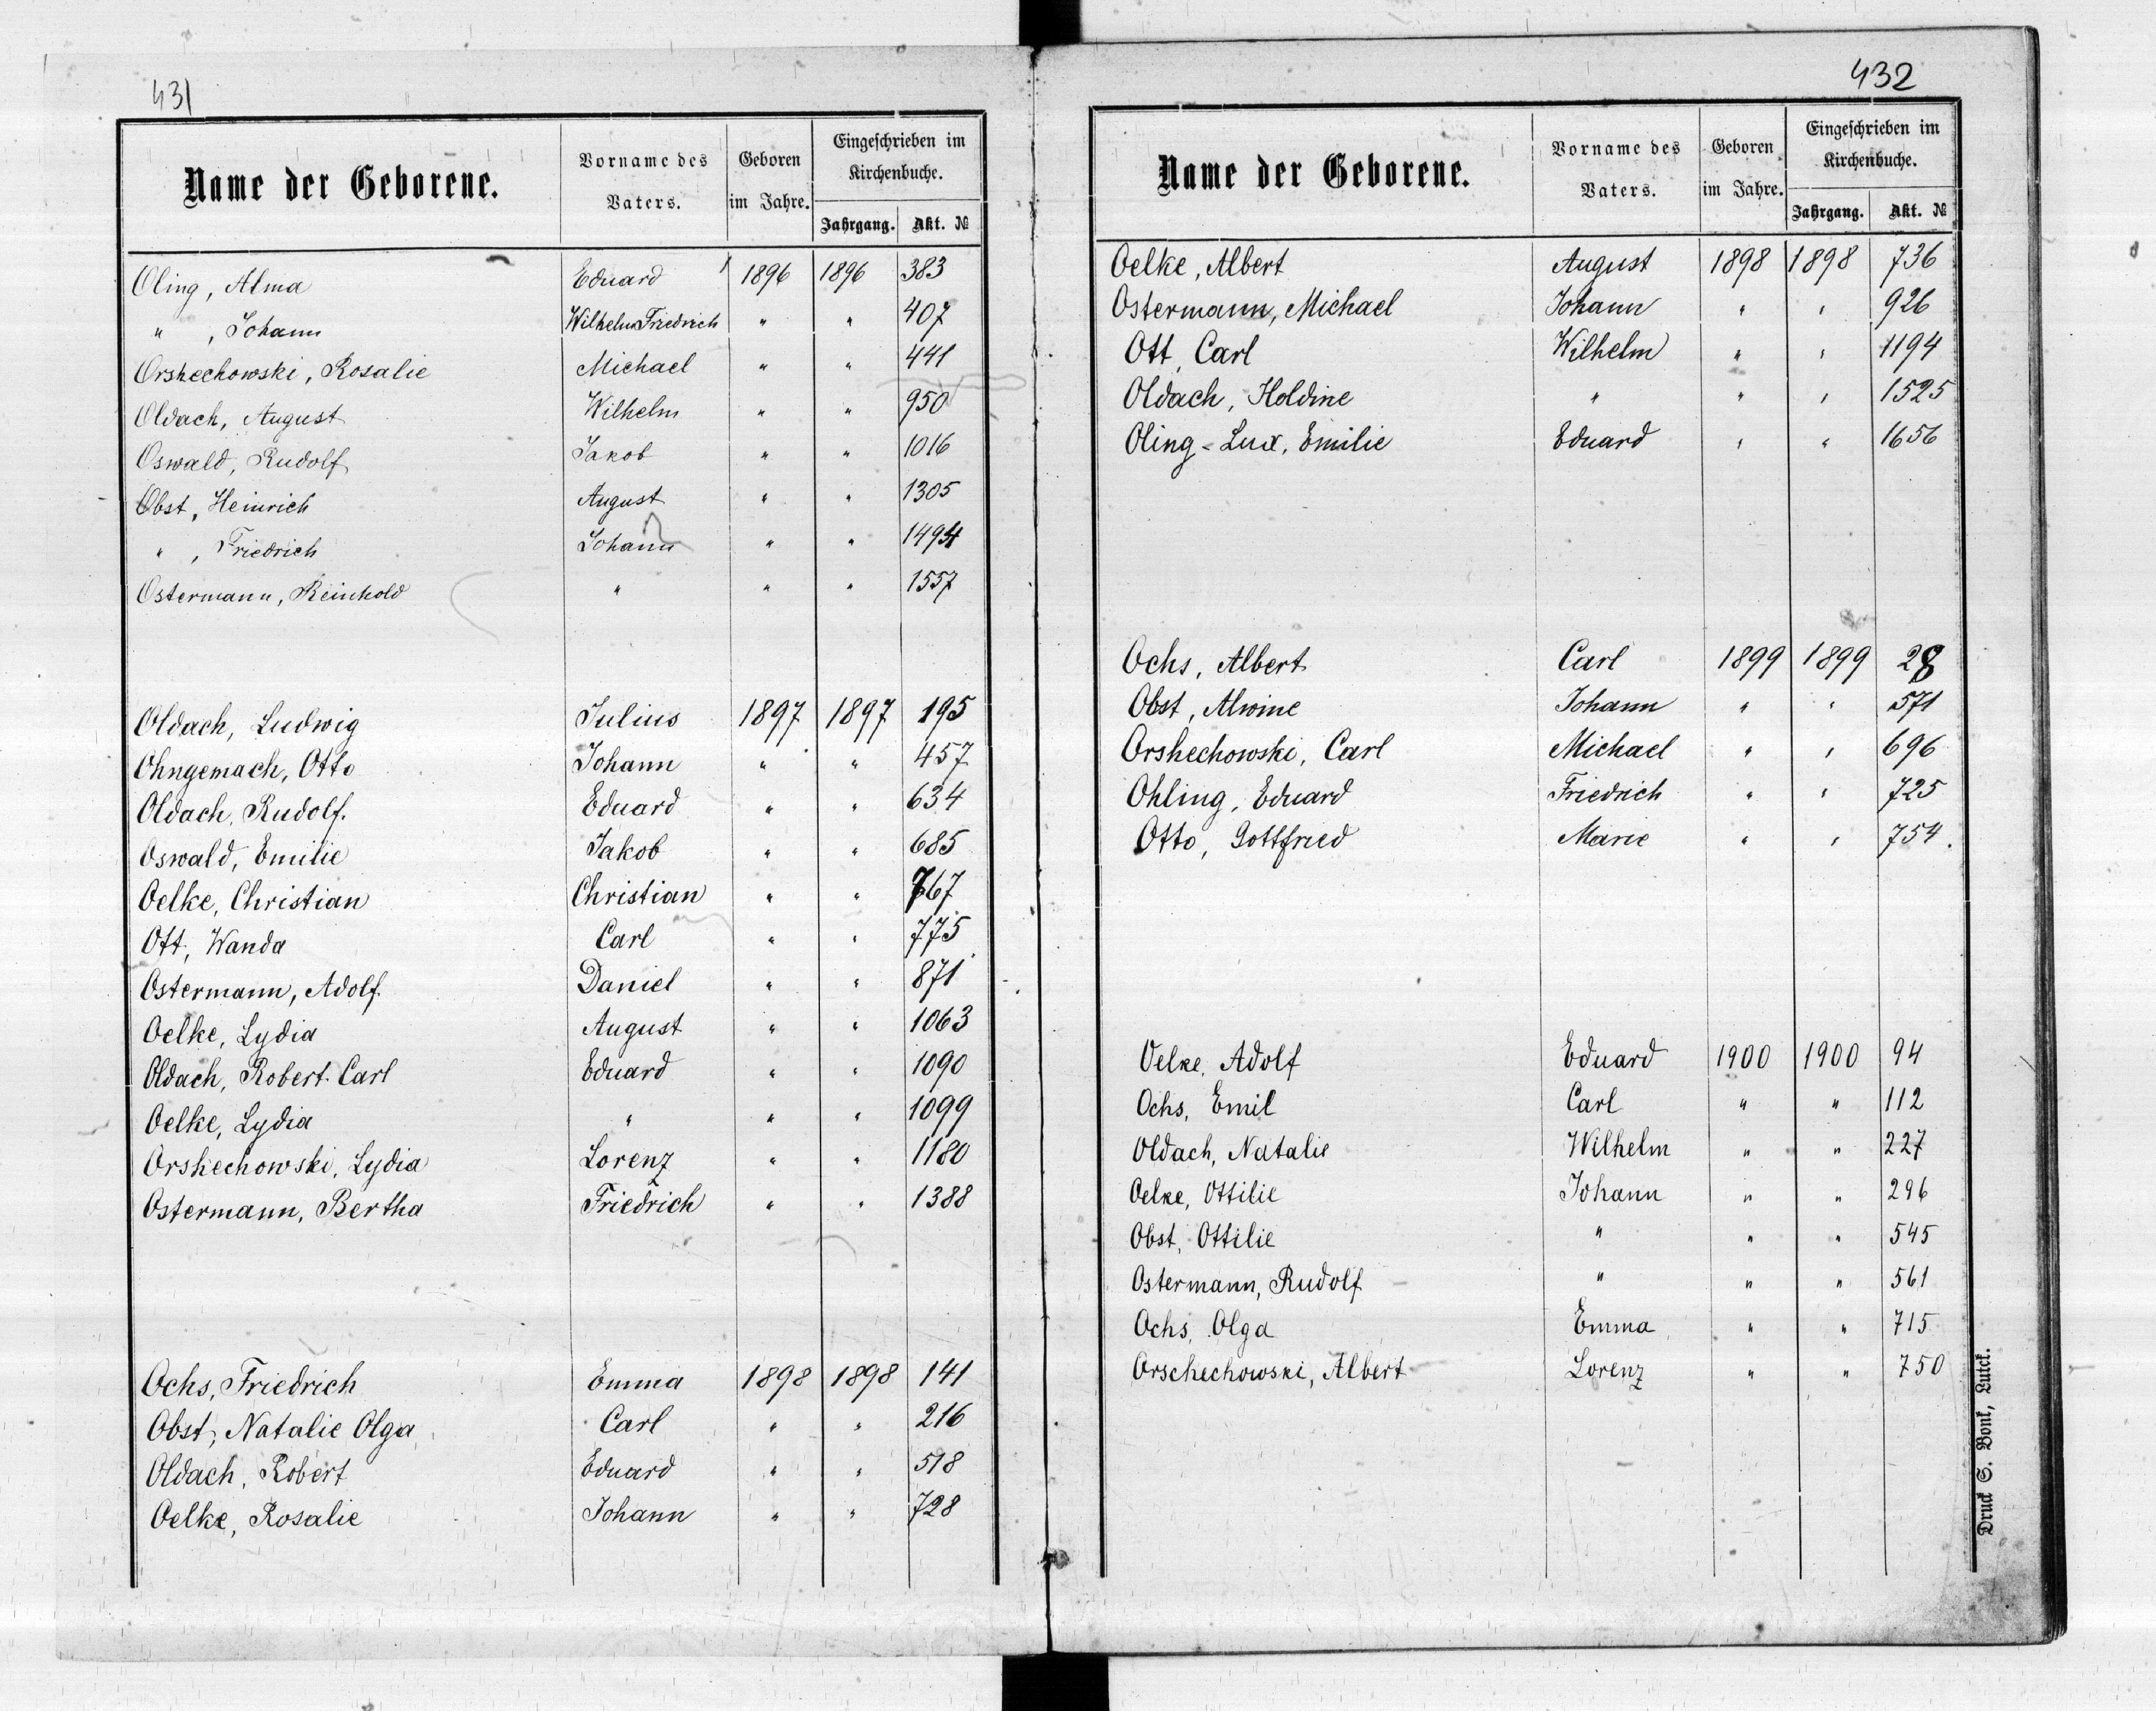 431
Name der Geborene. Vorname des Vaters. Geboren im Jahre. Eingeschrieben im Kirchenbuche. Jahrgang. Akt. №
Oling, Alma Eduard 1896 1896 383
" , Johann Wilhelm Friedrich " " 407
Orshechowski, Rosalie Michael " " 441
Oldach, August Wilhelm " " 950
Oswald, Rudolf Jakob " " 1016
Obst, Heinrich August " " 1305
" , Friedrich Johann " " 1494
Ostermann, Reinhold " " " 1557
Oldach, Ludwig Julius 1897 1897 195
Ohngemach, Otto Johann " " 457
Oldach, Rudolf. Eduard " " 634
Oswald, Emilie Jakob " " 685
Oelke, Christian Christian " " 767
Ott, Wanda Carl " " 775
Ostermann, Adolf Daniel " " 871
Oelke, Lydia August " " 1063
Oldach, Robert Carl Eduard " " 1090
Oelke, Lydia " " " 1099
Orshechowski, Lydia Lorenz " " 1180
Ostermann, Bertha Friedrich " " 1388
Ochs, Friedrich Emma 1898 1898 141
Obst, Natalie Olga Carl " " 216
Oldach, Robert Eduard " " 518
Oelke, Rosalie Johann " " 728
432
Name der Geborene. Vorname des Vaters. Geboren im Jahre. Eingeschrieben im Kirchenbuche. Jahrgang. Akt. №
Oelke, Albert August 1898 1898 736
Ostermann, Michael Johann " " 926
Ott, Carl Wilhelm " " 1194
Oldach, Holdine " " " 1525
Oling-Lux, Emilie Eduard " " 1656
Ochs, Albert Carl 1899 1899 28
Obst, Alwine Johann " " 571
Orshechowski, Carl Michael " " 696
Ohling, Eduard Friedrich " " 725
Otto, Gottfried Marie " " 754.
Oelke, Adolf Eduard 1900 1900 94
Ochs, Emil Carl " " 112
Oldach, Natalie Wilhelm " " 227
Oelke, Ottilie Johann " " 296
Obst, Ottilie " " " 545
Ostermann, Rudolf " " " 561
Ochs, Olga Emma " " 715
Orschechowski, Albert Lorenz " " 750
Druck S. Bonk, Lutck.